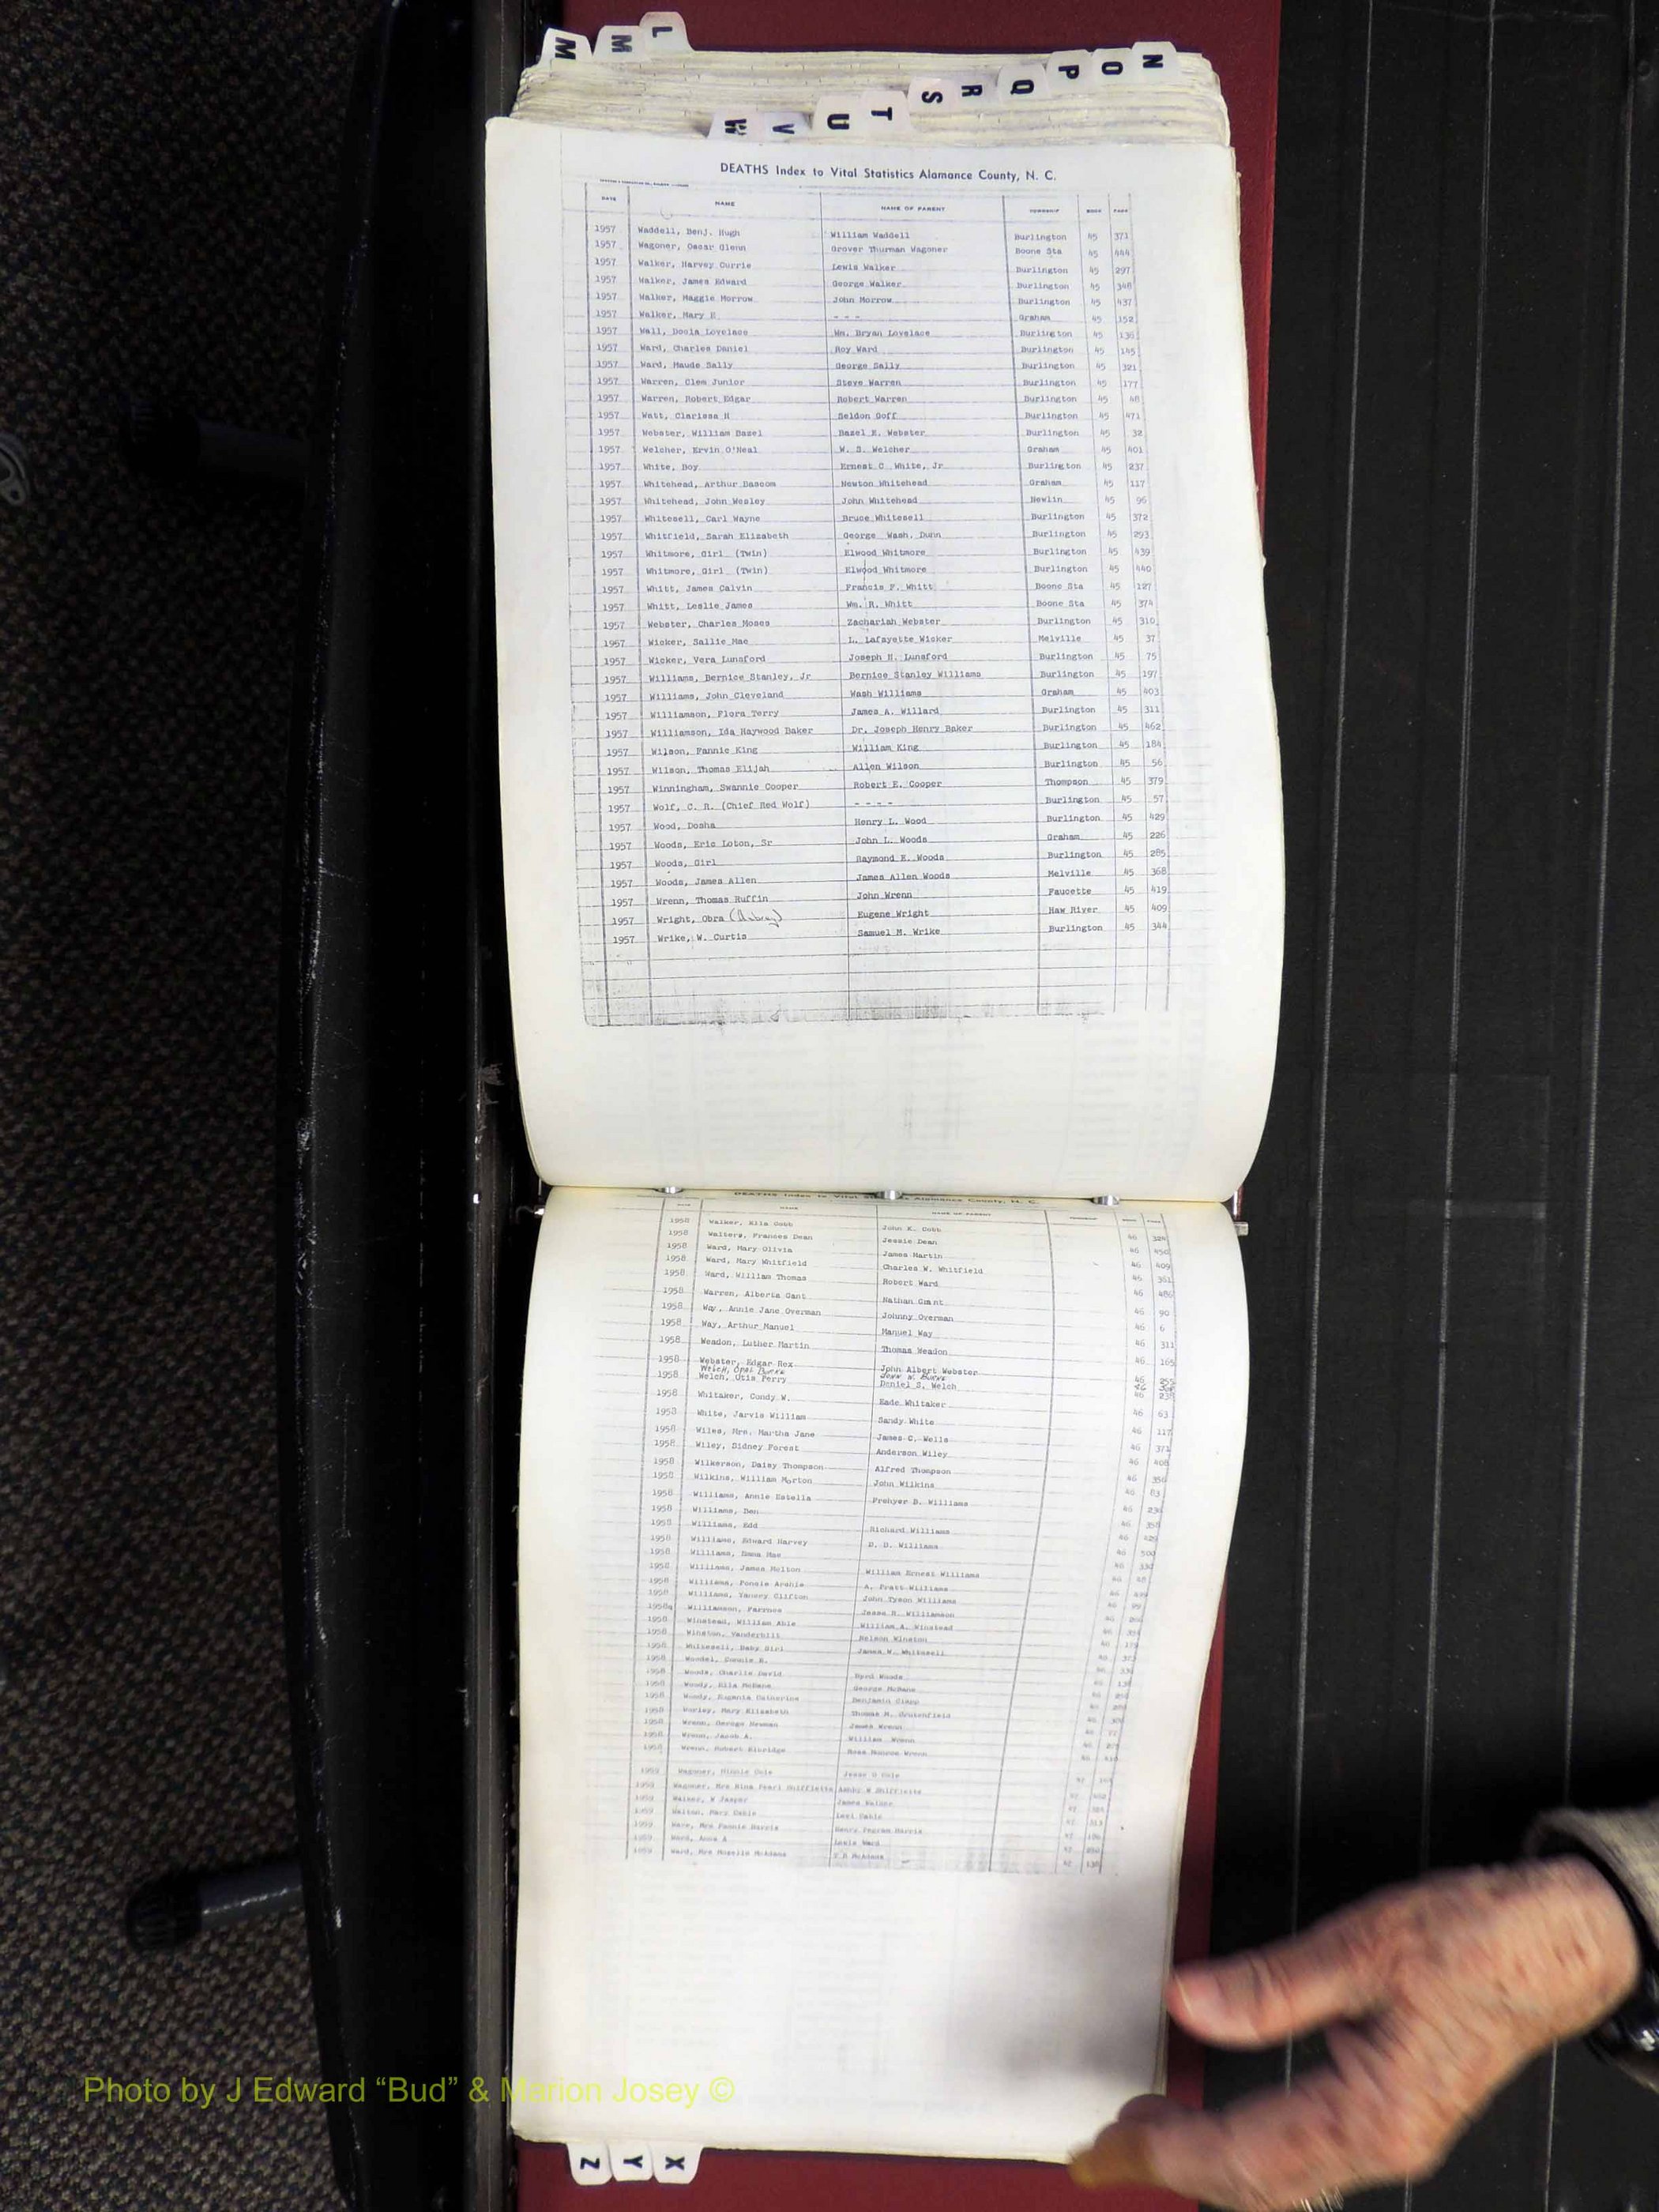 L
M
M
N
O
P
Q
R
S
T
U
V
W
DEATHS Index to Vital Statistics Alamance County, N. C.
DATE NAME NAME OF PARENT TOWNSHIP BOOK PAGE
1957 Waddell, Benj. Hugh William Waddell Burlington 45 371
1957 Wagoner, Oscar Glenn Grover Thurman Wagoner Boone Sta 45 444
1957 Walker, Harvey Currie Lewis Walker Burlington 45 297
1957 Walker, James Edward George Walker Burlington 45 348
1957 Walker, Maggie Morrow John Morrow Burlington 45 437
1957 Walker, Mary E - - - Graham 45 152
1957 Wall, Docia Lovelace Wm. Bryan Lovelace Burlington 45 136
1957 Ward, Charles Daniel Roy Ward Burlington 45 145
1957 Ward, Maude Sally George Sally Burlington 45 321
1957 Warren, Clem Junior Steve Warren Burlington 45 177
1957 Warren, Robert Edgar Robert Warren Burlington 45 48
1957 Watt, Clarissa H Seldon Goff Burlington 45 471
1957 Webster, William Basel Basel R. Webster Burlington 45 32
1957 Welcher, Ervin O'Neal W. S. Welcher Graham 45 401
1957 White, Boy Ernest C White, Jr Burlington 45 237
1957 Whitehead, Arthur Bascom Newton Whitehead Graham 45 117
1957 Whitehead, John Wesley John Whitehead Newlin 45 96
1957 Whitesell, Carl Wayne Bruce Whitesell Burlington 45 372
1957 Whitfield, Sarah Elizabeth George Wash. Dunn Burlington 45 293
1957 Whitmore, Girl (Twin) Elwood Whitmore Burlington 45 439
1957 Whitmore, Girl (Twin) Elwood Whitmore Burlington 45 440
1957 Whitt, James Calvin Francis F. Whitt Boone Sta 45 127
1957 Whitt, Leslie James Wm. R. Whitt Boone Sta 45 374
1957 Webster, Charles Moses Zachariah Webster Burlington 45 310
1957 Wicker, Sallie Mae L. Lafayette Wicker Melville 45 37
1957 Wicker, Vera Lunsford Joseph H. Lunsford Burlington 45 75
1957 Williams, Bernice Stanley, Jr Bernice Stanley Williams Burlington 45 197
1957 Williams, John Cleveland Wash Williams Graham 45 403
1957 Williamson, Flora Terry James A. Willard Burlington 45 311
1957 Williamson, Ida Haywood Baker Dr. Joseph Henry Baker Burlington 45 462
1957 Wilson, Fannie King William King Burlington 45 184
1957 Wilson, Thomas Elijah Allen Wilson Burlington 45 56
1957 Winningham, Swannie Cooper Robert E. Cooper Thompson 45 379
1957 Wolf, C. R. (Chief Red Wolf) - - - - Burlington 45 57
1957 Wood, Dosha Henry L. Wood Burlington 45 429
1957 Woods, Eric Loton, Sr John L. Woods Graham 45 226
1957 Woods, Girl Raymond E. Woods Burlington 45 285
1957 Woods, James Allen James Allen Woods Melville 45 368
1957 Wrenn, Thomas Ruffin John Wrenn Faucette 45 419
1957 Wright, Obra Eugene Wright Haw River 45 409
1957 Wrike, W. Curtis Samuel M. Wrike Burlington 45 344
DEATHS Index to Vital Alamance County, N. C.
NAME NAME OF PARENT
1958 Walker, Ella Cobb John K. Cobb 46 324
1958 Walters, Frances Dean Jessie Dean 46 450
1958 Ward, Mary Olivia James Martin 46 409
1958 Ward, Mary Whitfield Charles W. Whitfield 46 361
1958 Ward, William Thomas Robert Ward 46 486
1958 Warren, Alberta Gant Nathan Gant 46 90
1958 Way, Annie Jane Overman Johnny Overman 46 6
1958 Way, Arthur Manuel Manuel Way 46 311
1958 Weadon, Luther Martin Thomas Weadon 46 165
1958 Webster, Edgar Rex John Albert Webster 46
Welch, Opal Burke John W. Burke 46
1958 Welch, Otis Perry Daniel S. Welch 46
1958 Whitaker, Condy W. Eade Whitaker 46 63
1958 White, Jarvis William Sandy White 46 117
1958 Wiles, Mrs. Martha Jane James C. Wells 46 371
1958 Wiley, Sidney Forest Anderson Wiley 46 408
1958 Wilkerson, Daisy Thompson Alfred Thompson 46
1958 Wilkins, William Morton John Wilkins 46 83
1958 Williams, Annie Estella Prohyer D. Williams 46
1958 Williams, Ben 46
1958 Williams, Edd Richard Williams 46
1958 Williams, Edward Harvey D. D. Williams 46 500
1958 Williams, Emma Mae 46
1958 Williams, James Melton William Ernest Williams 46
1958 Williams, Ponnie Ardnie A. Pratt Williams 46
1958 Williams, Yancey Clifton John Tyson Williams 46
1958 Williamson, Farrnce Jesse R. Williamson 46
1958 Winstead, William Able William A. Winstead 46
1958 Winston, Vanderbilt Nelson Winston 46
1958 Whitesell, Baby Girl James W. Whitesell 46
1958 Woodel, Connie R. 46
1958 Woods, Charlie David Byrd Woods 46
1958 Woody, Ella McBane George McBane 46
1958 Woody, Eugenia Catherine Benjamin Clapp 46
1958 Worley, Mary Elizabeth Thomas M. Crutchfield 46
1958 Wrenn, George Newman James Wrenn 46
1958 Wrenn, Jacob A. William Wrenn 46
1958 Wrenn, Robert Elbridge Ross Monroe Wrenn 46
1959 Wagoner, Minnie Cole Jesse G Cole 47
1959 Wagoner, Mrs Nina Pearl Shifflette Ashby W Shifflette 47
1959 Walker, W Jasper James Walker 47
1959 Walton, Mary Cable Levi Cable 47
1959 Ware, Mrs Fannie Harris Henry Pegram Harris 47
1959 Ward, Anna A Lewis Ward 47
1959 Ward, Mrs Mozelle McAdams McAdams 47
Photo by J Edward “Bud” & Marion Josey ©
Z
Y
X